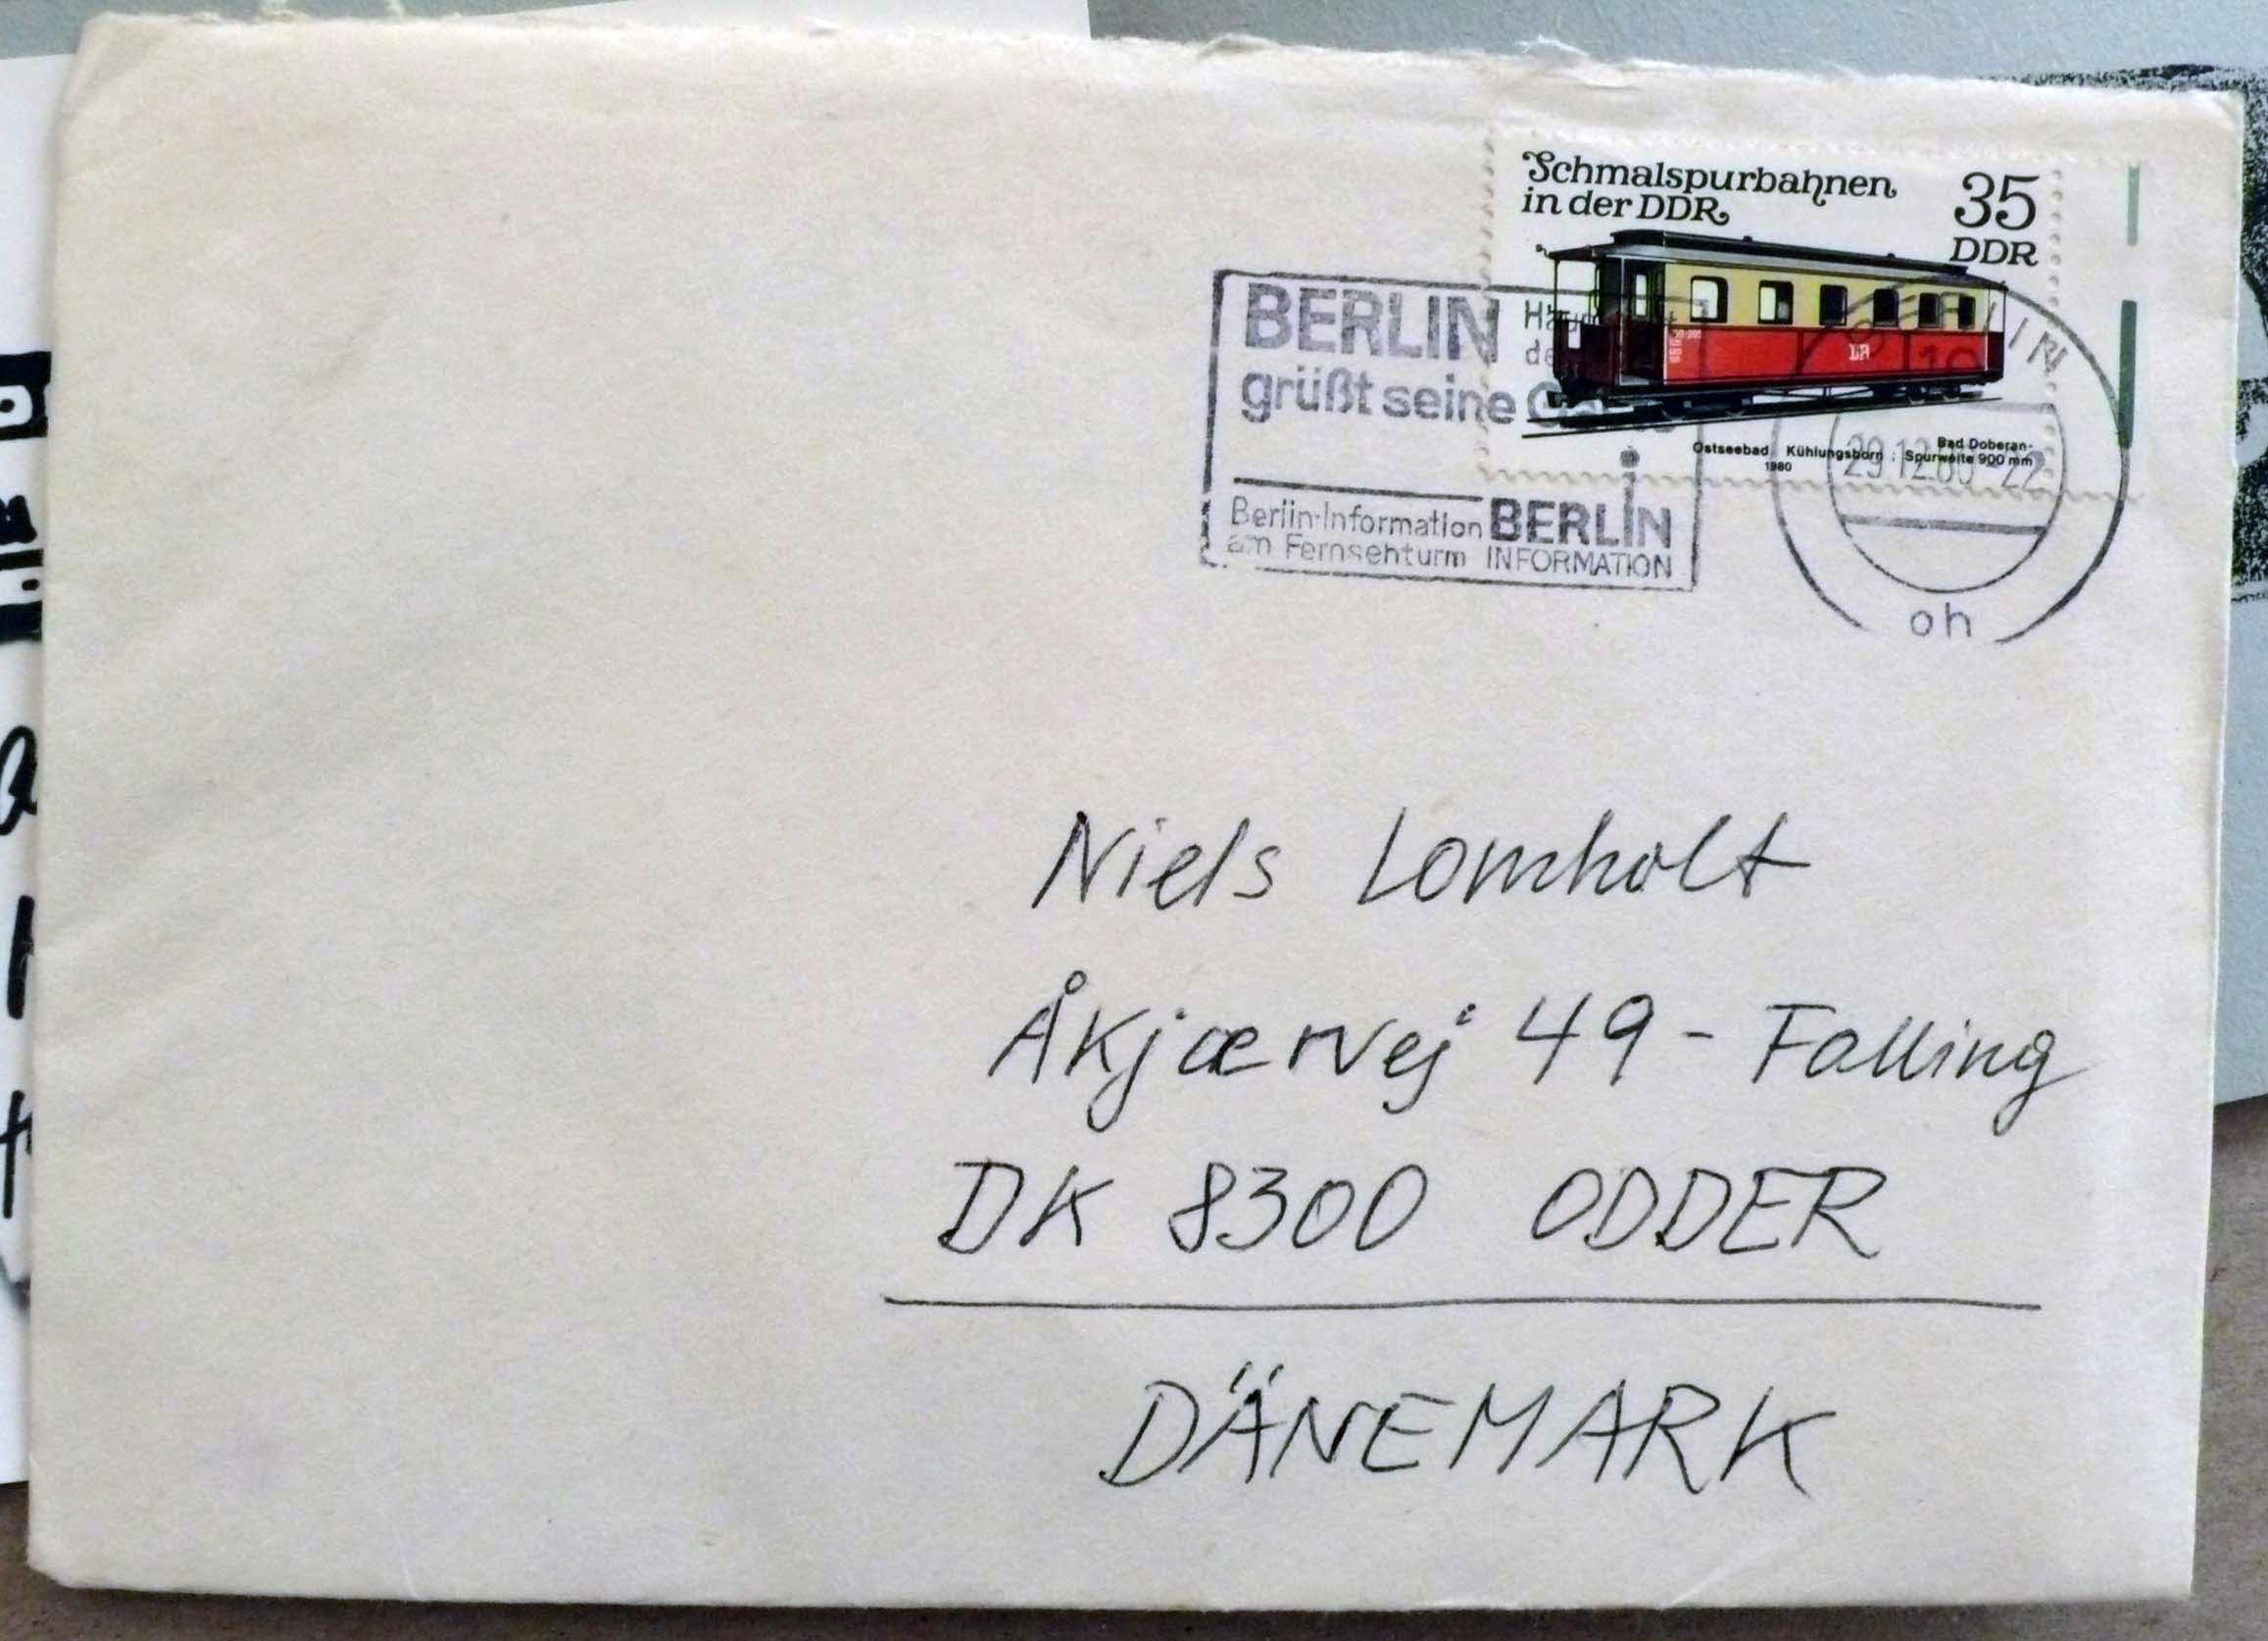 Schmalspurbahnen
in der DDR
35
DDR
Ostseebad Kühlungsborn · Bad Doberan-
1980 Spurweite 900 mm
BERLIN
grüßt seine
Berlin-Information
am Fernsehturm
BERLIN
INFORMATION
29.12.80-22
oh
Niels Lomholt
Åkjærvej 49 - Falling
DK 8300 ODDER
DÄNEMARK